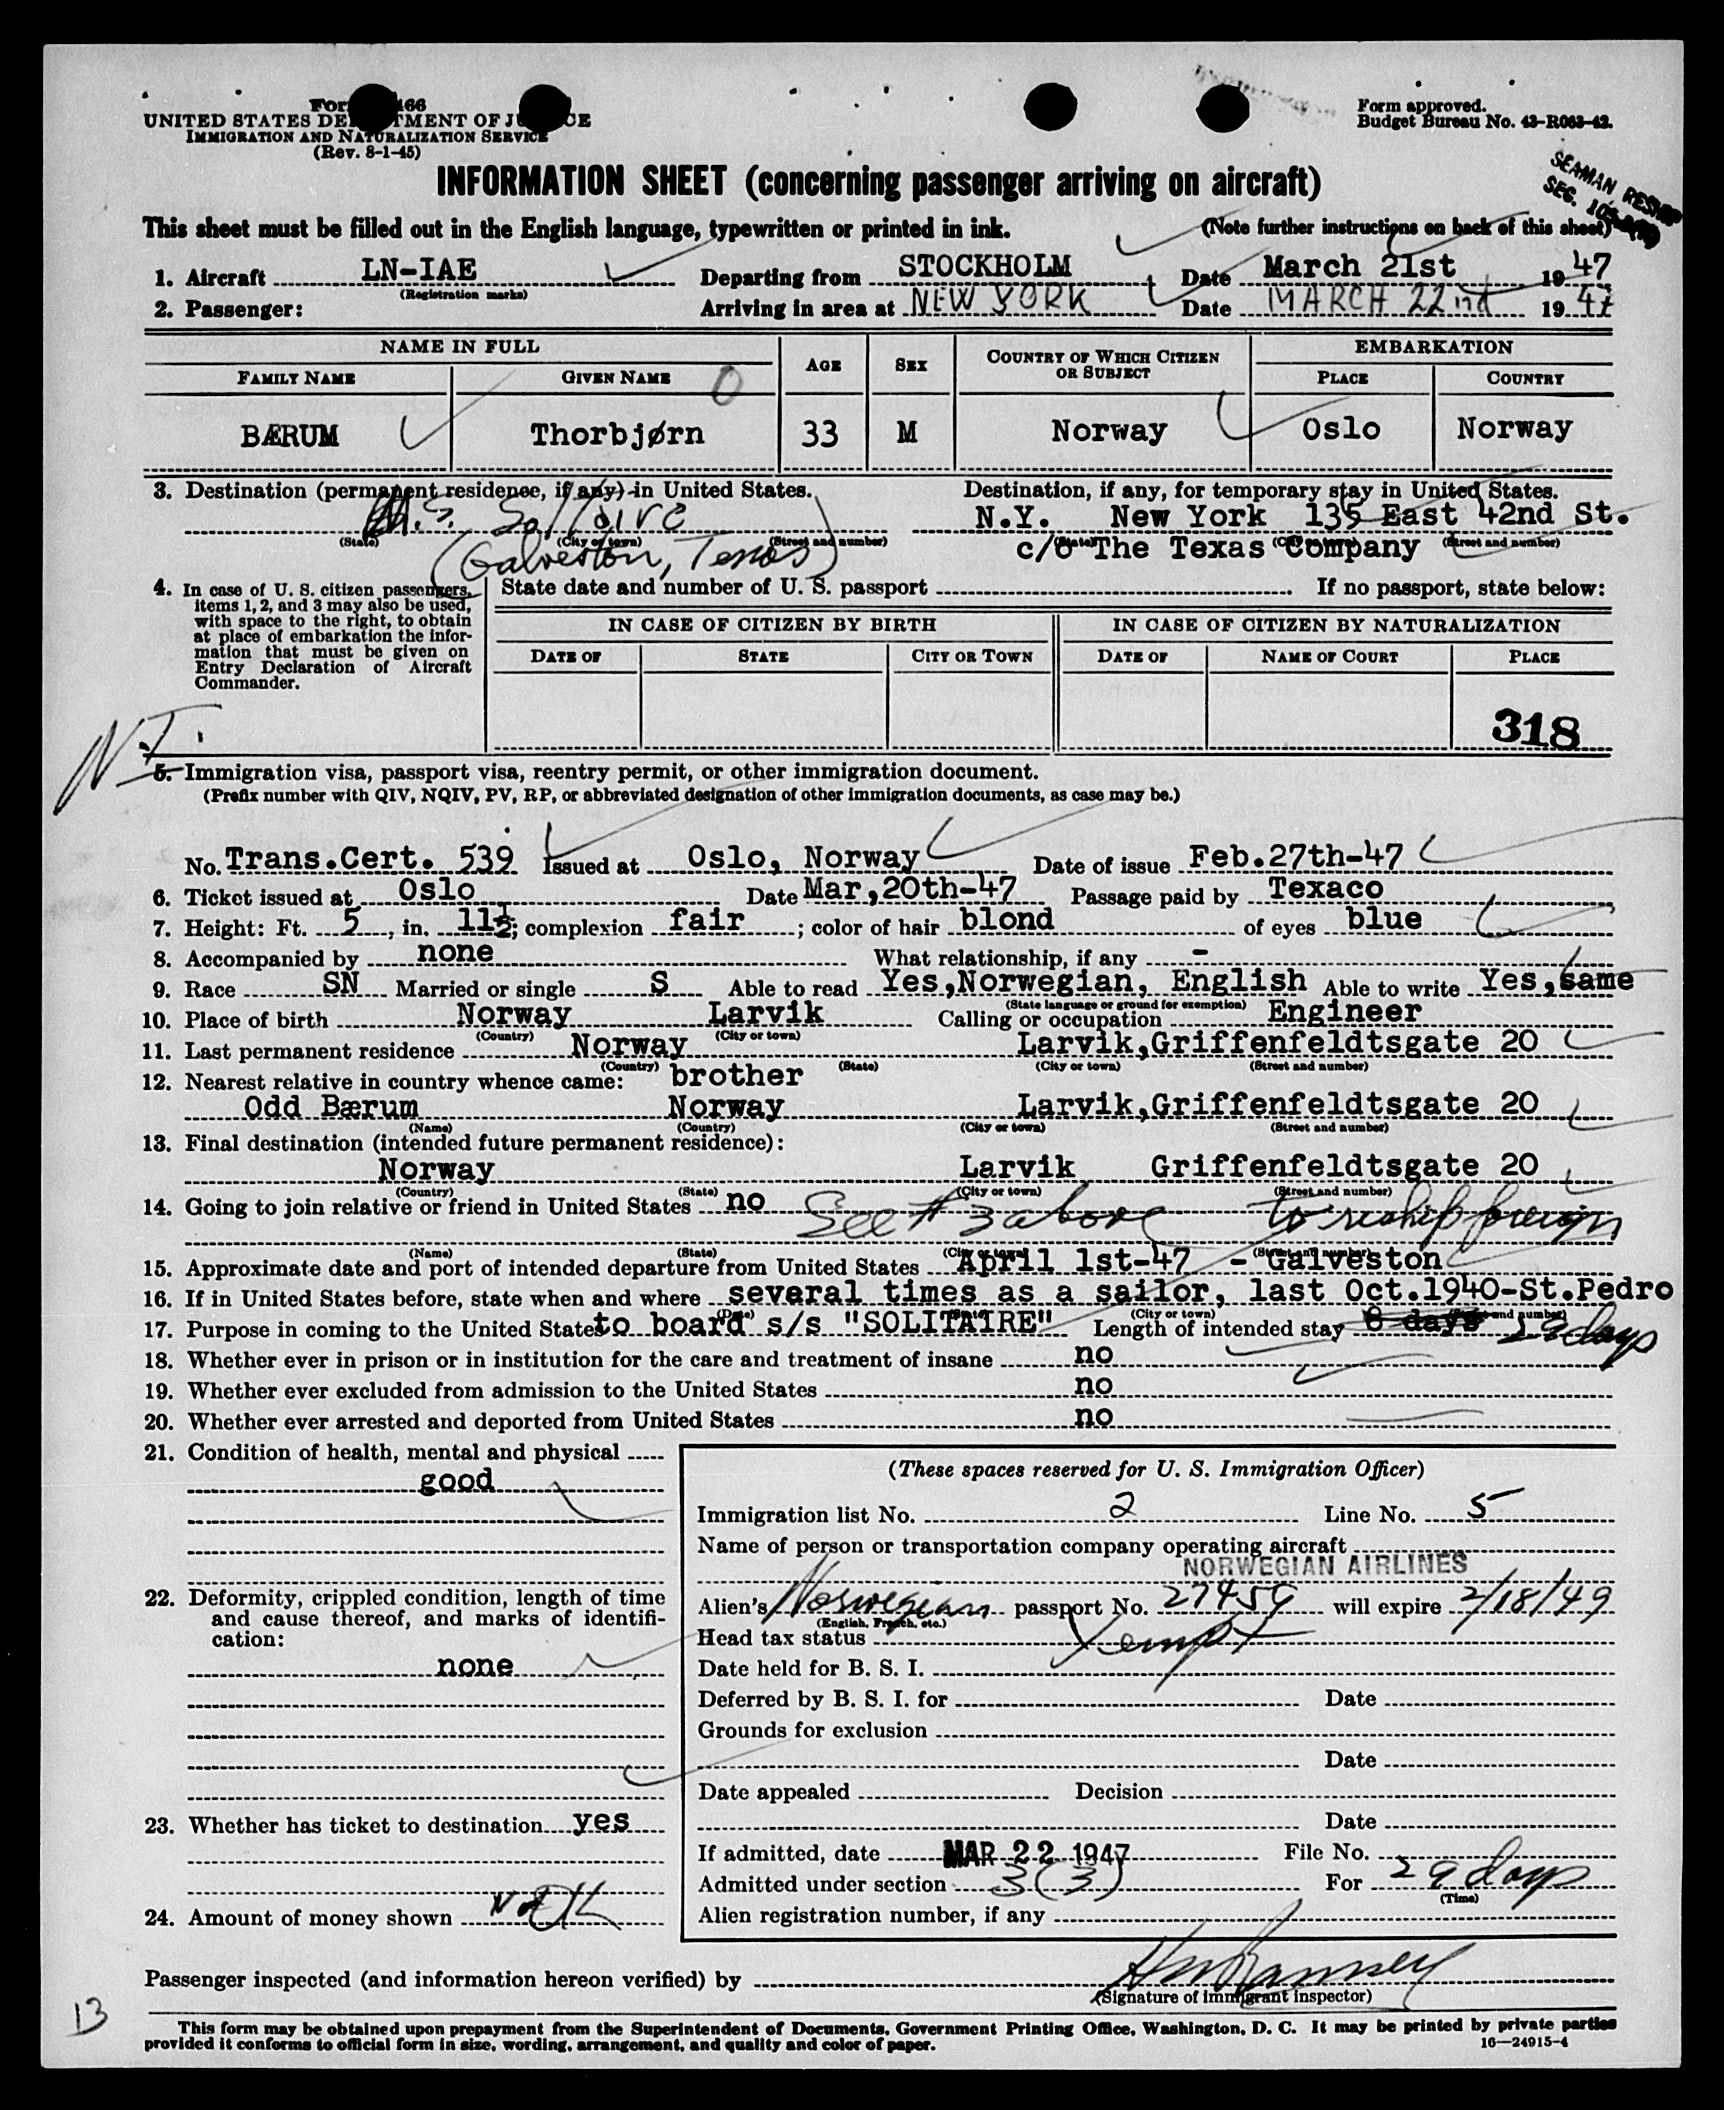 Form 466
UNITED STATES DEPARTMENT OF JUSTICE
IMMIGRATION AND NATURALIZATION SERVICE
(Rev. 8-1-45)
Form approved.
Budget Bureau No. 43-R063-42.
INFORMATION SHEET (concerning passenger arriving on aircraft)
SEAMAN RESHIP
SEC.
This sheet must be filled out in the English language, typewritten or printed in ink. (Note further instructions on back of this sheet)
1. Aircraft LN-IAE Departing from STOCKHOLM Date March 21st 1947
(Registration marks)
2. Passenger: Arriving in area at NEW YORK Date MARCH 22nd 1947
NAME IN FULL AGE SEX COUNTRY OF WHICH CITIZEN OR SUBJECT EMBARKATION
FAMILY NAME GIVEN NAME O PLACE COUNTRY
BÆRUM Thorbjørn 33 M Norway Oslo Norway
3. Destination (permanent residence, if any) in United States. Destination, if any, for temporary stay in United States.
M.S. Solitaire N.Y. New York 135 East 42nd St.
(State) (City or town) (Street and number) (State) (City or town) (Street and number)
(Galveston, Texas) c/o The Texas Company
4. In case of U. S. citizen passengers, items 1, 2, and 3 may also be used, with space to the right, to obtain at place of embarkation the information that must be given on Entry Declaration of Aircraft Commander.
State date and number of U. S. passport If no passport, state below:
IN CASE OF CITIZEN BY BIRTH IN CASE OF CITIZEN BY NATURALIZATION
DATE OF STATE CITY OR TOWN DATE OF NAME OF COURT PLACE
318
5. Immigration visa, passport visa, reentry permit, or other immigration document.
(Prefix number with QIV, NQIV, PV, RP, or abbreviated designation of other immigration documents, as case may be.)
No. Trans.Cert. 539 Issued at Oslo, Norway Date of issue Feb.27th-47
6. Ticket issued at Oslo Date Mar,20th-47 Passage paid by Texaco
7. Height: Ft. 5, in. 11½; complexion fair; color of hair blond of eyes blue
8. Accompanied by none What relationship, if any -
9. Race SN Married or single S Able to read Yes,Norwegian, English Able to write Yes,same
(State language or ground for exemption)
10. Place of birth Norway Larvik Calling or occupation Engineer
(Country) (City or town)
11. Last permanent residence Norway Larvik,Griffenfeldtsgate 20
(Country) (State) (City or town) (Street and number)
12. Nearest relative in country whence came: brother
Odd Bærum Norway Larvik,Griffenfeldtsgate 20
(Name) (Country) (City or town) (Street and number)
13. Final destination (intended future permanent residence):
Norway Larvik Griffenfeldtsgate 20
(Country) (State) (City or town) (Street and number)
14. Going to join relative or friend in United States no See # 3 above to reship foreign
(Name) (State) (City or town) (Street and number)
15. Approximate date and port of intended departure from United States April 1st-47 - Galveston
16. If in United States before, state when and where several times as a sailor, last Oct.1940-St.Pedro
(Date) (State) (City or town) (Street and number)
17. Purpose in coming to the United States to board s/s "SOLITAIRE" Length of intended stay 8 days 29 days
18. Whether ever in prison or in institution for the care and treatment of insane no
19. Whether ever excluded from admission to the United States no
20. Whether ever arrested and deported from United States no
21. Condition of health, mental and physical
good
22. Deformity, crippled condition, length of time and cause thereof, and marks of identification:
none
23. Whether has ticket to destination yes
24. Amount of money shown
(These spaces reserved for U. S. Immigration Officer)
Immigration list No. 2 Line No. 5
Name of person or transportation company operating aircraft
NORWEGIAN AIRLINES
Alien's Norwegian passport No. 27459 will expire 2/18/49
(English, French, etc.)
Head tax status Xempt
Date held for B. S. I.
Deferred by B. S. I. for Date
Grounds for exclusion
Date
Date appealed Decision
Date
If admitted, date MAR 22 1947 File No.
Admitted under section 3(3) For 29 days
(Time)
Alien registration number, if any
Passenger inspected (and information hereon verified) by
(Signature of immigrant inspector)
13
This form may be obtained upon prepayment from the Superintendent of Documents, Government Printing Office, Washington, D. C. It may be printed by private parties
provided it conforms to official form in size, wording, arrangement, and quality and color of paper. 16—24915-4